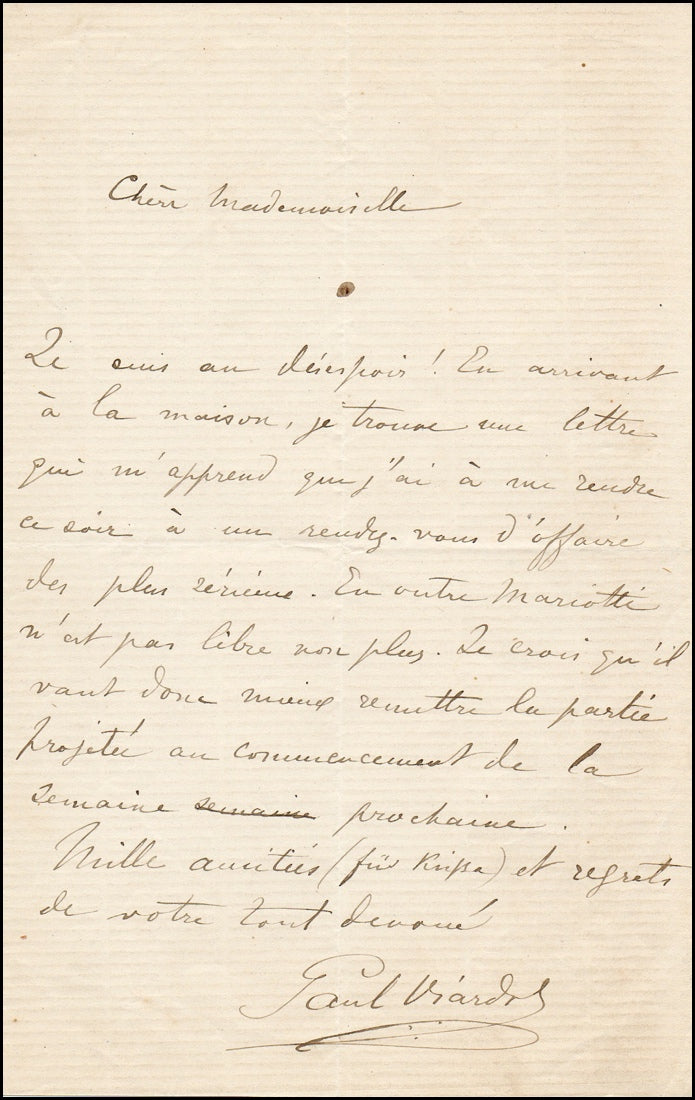 Chère Mademoiselle
Je suis au désespoir! En arrivant
à la maison, je trouve une lettre
qui m'apprend que j'ai à me rendre
ce soir à un rendez-vous d'affaire
des plus sérieuse. En outre Mariotti
n'est pas libre non plus. Je crois qu'il
vaut donc mieux remettre la partie
projetée au commencement de la
semaine semaine prochaine.
Mille amitiés (für) et regrets
de votre tout dévoué
Paul Viardot